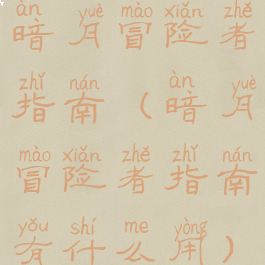 àn yuè mào xiǎn zhě
暗月冒险者
zhǐ nán àn yuè
指南(暗月
mào xiǎn zhě zhǐ nán
冒险者指南
yǒu shí me yòng
有什么用)